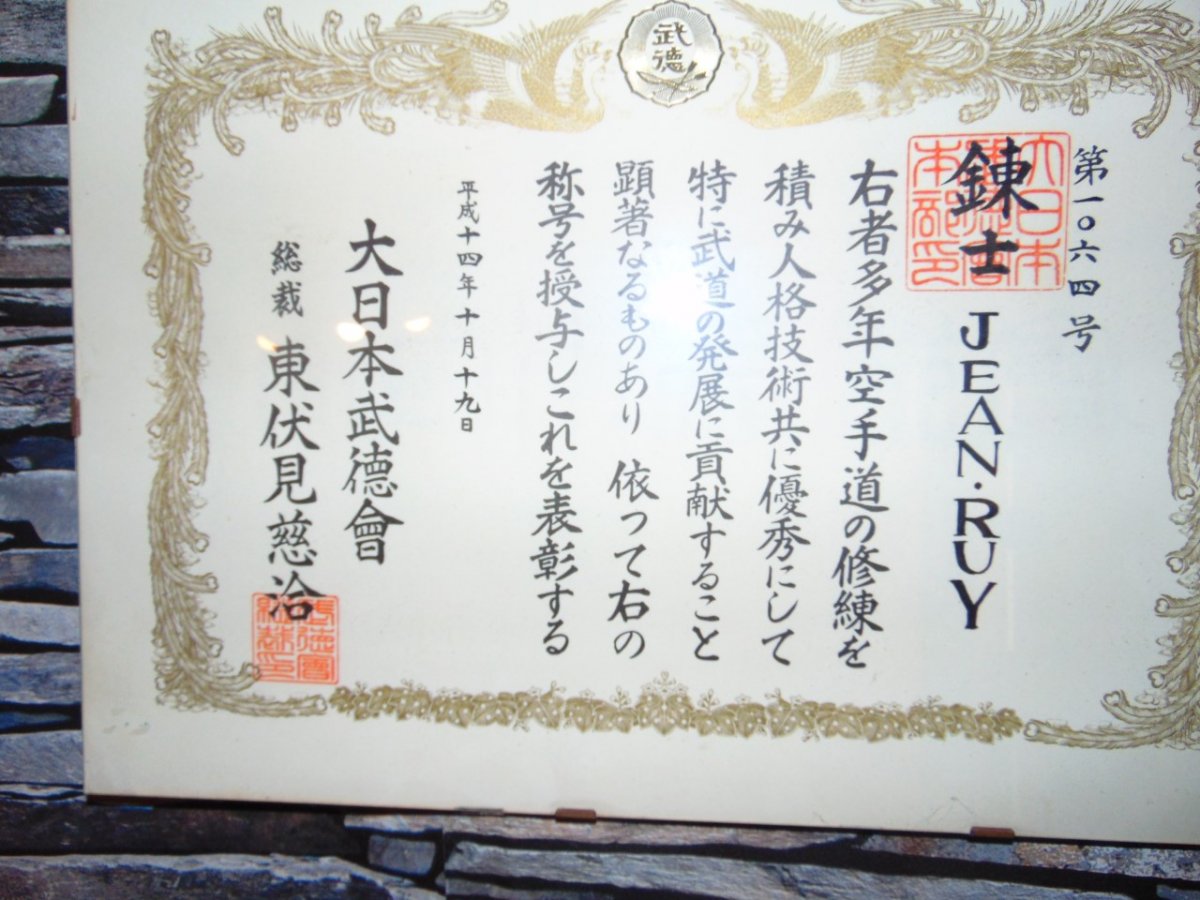 武徳
第一〇六四号
錬士 JEAN・RUY
右者多年空手道の修練を
積み人格技術共に優秀にして
特に武道の発展に貢献すること
顕著なるものあり 依って右の
称号を授与しこれを表彰する
平成十四年十月十九日
大日本武徳會
総裁 東伏見慈洽